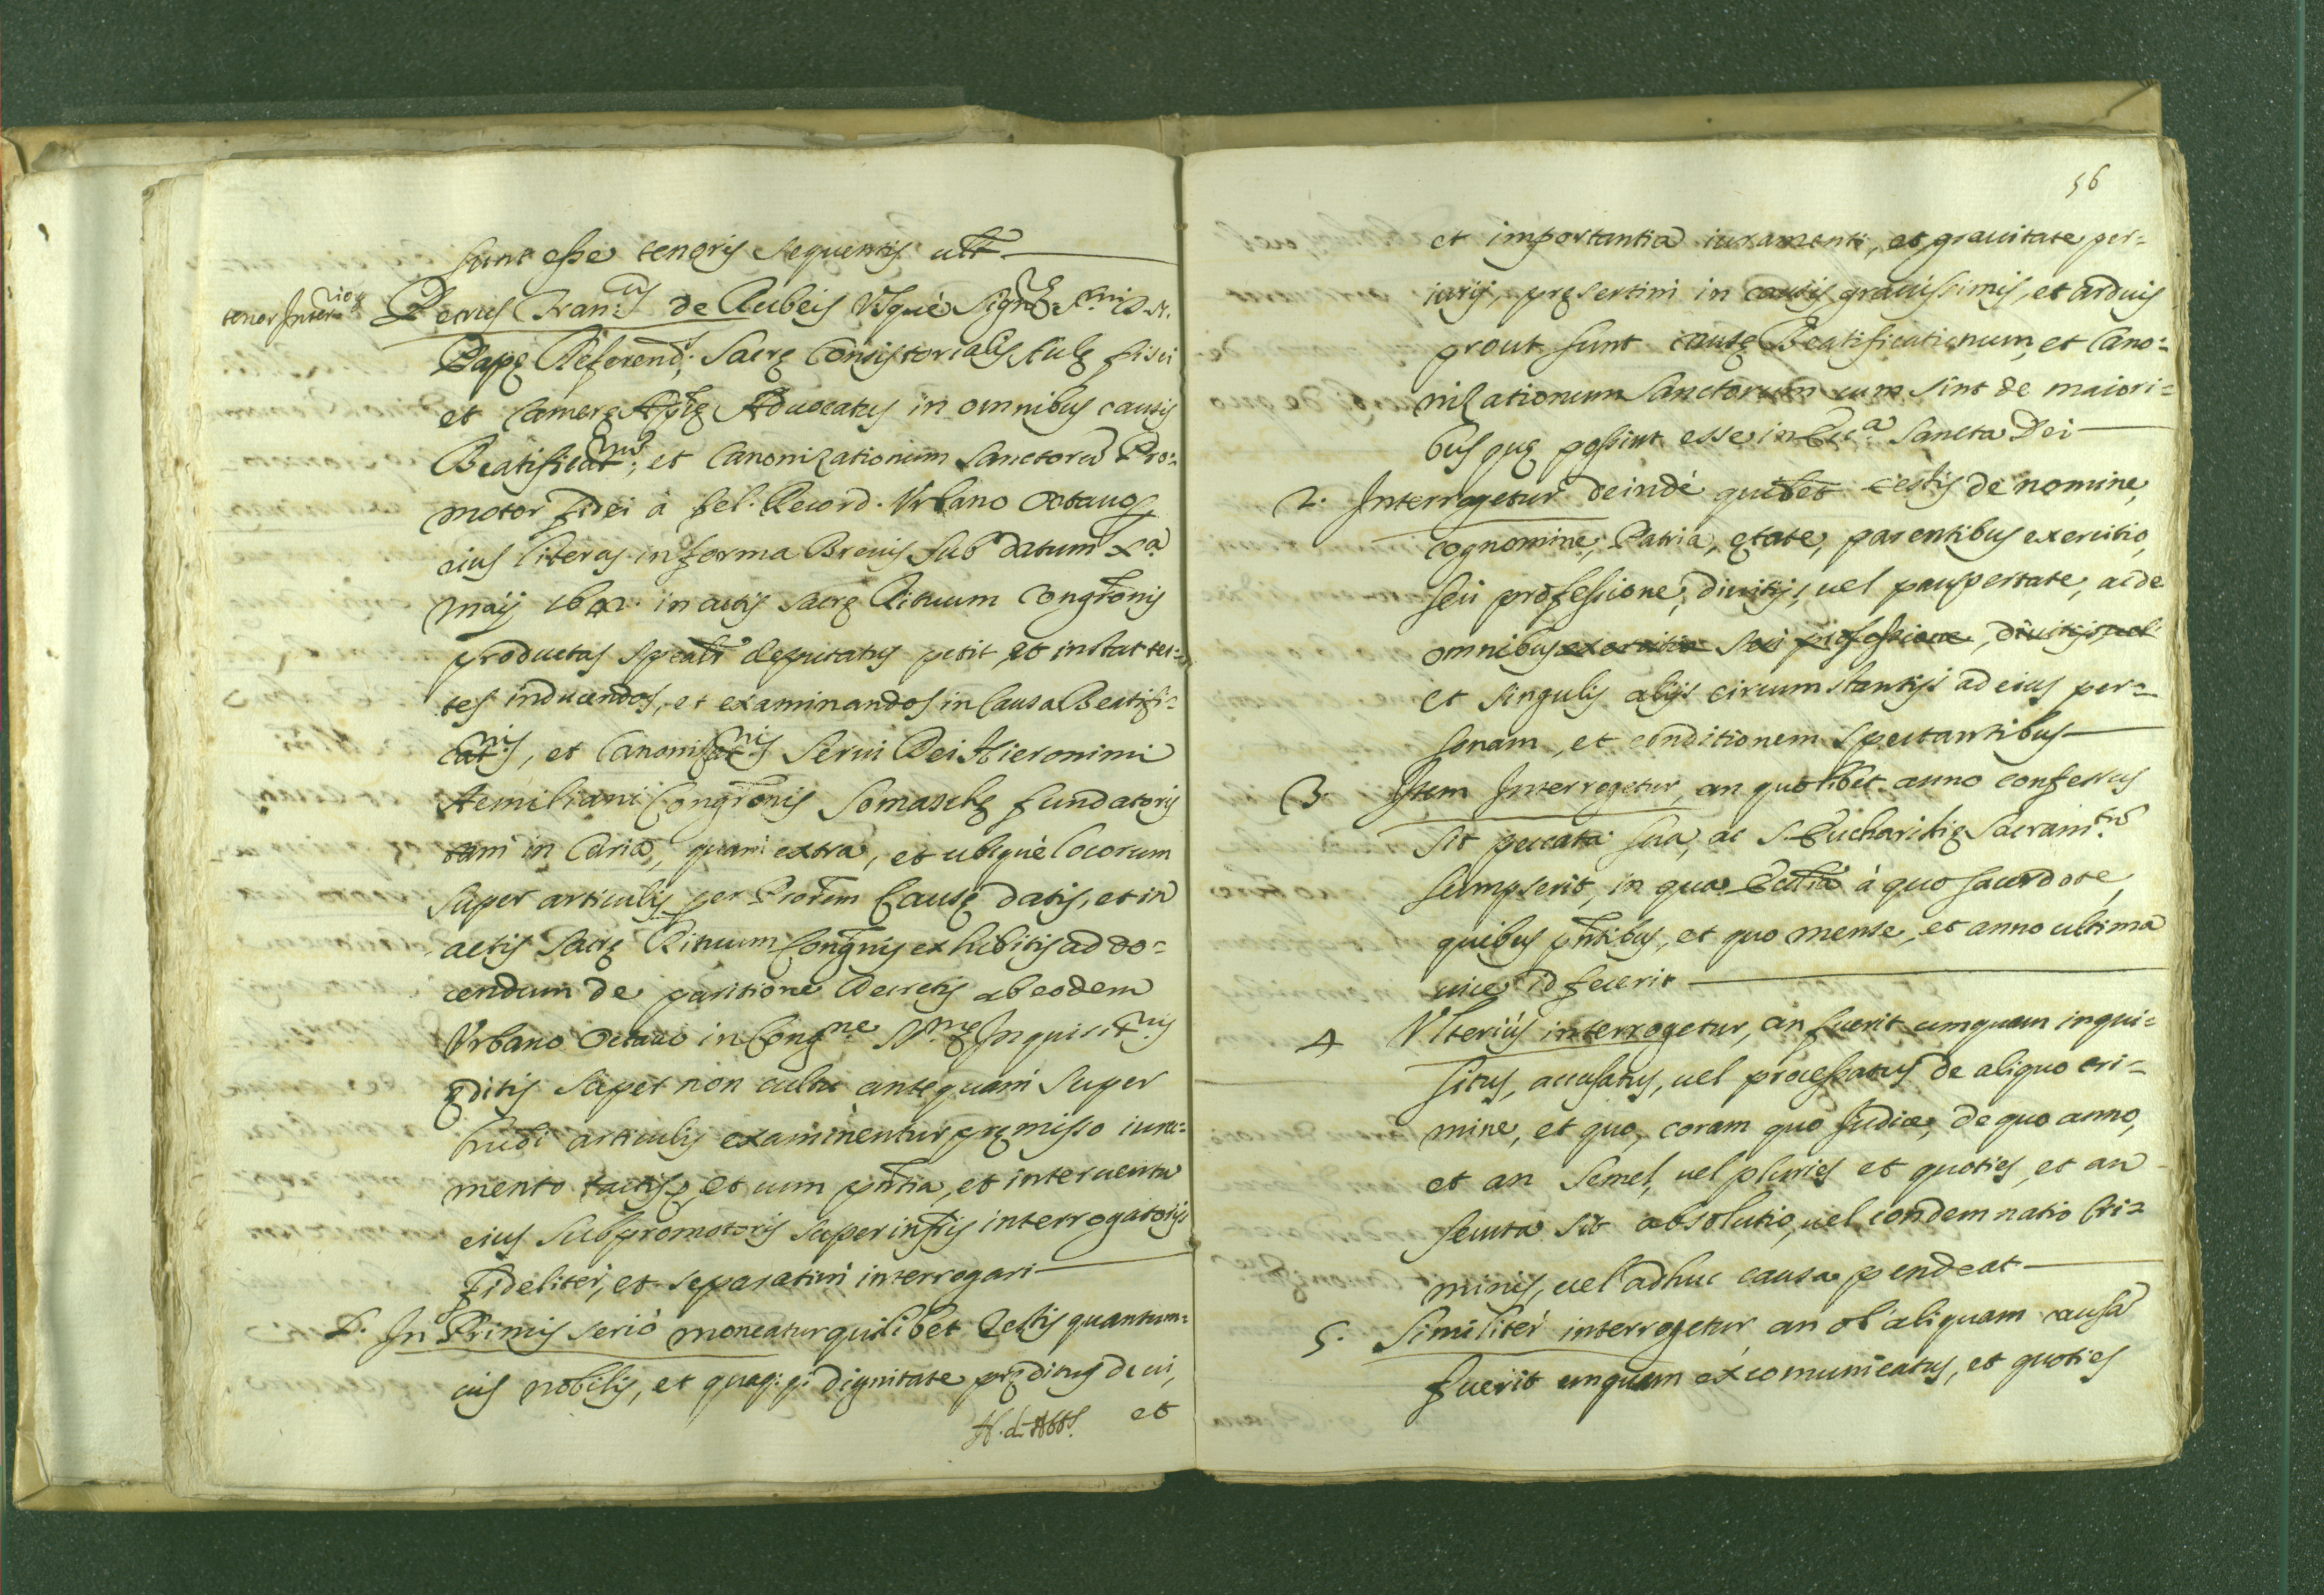 sunt esse tenoris sequentis utt
tenor Inter.rior
Petrus Fran.cus de Rubeis Vsque Signre S.mi D. N.
Papę Referend; Sacrę Consistorialis Aulę fisci
et Camerę Aplę Advocatus in omnibus causis
Beatificat.num, et Canonizationum Sanctorũ Pro=
motor fidei à fel. Record. Vrbano Octauo p
eius literas in forma Breuis sub datum xa
maij 1642. in actis sacrę Rituum Congronis
productas spealr deputatus petit, et instat tes=
tes inducendos, et examinandos in Causa Beatifi=
cat.nis, et Canonizat.nis Serui Dei Hieronimi
Aemiliani Congronis Somaschę fundatoris
tam in Curia, quam extra, et ubiquè locorum
super articulis per Prorem Causę datis, et in
actis sacrę Rituum Congnis exhibitis ad do=
cendum de paritione Decretis ab eodem
Vrbano Octauo in Cong.ne S.mę Inquisit.nis
ęditis super non cultu antequam super
hmõi articulis examinentur pręmisso iura=
mento tactis p et cum pñtia, et interuentu
eius subpromotoris super infris interrogatorijs
fideliter, et separatim interrogari
1. In Primis seriò moneatur quilibet Testis quantum=
uis nobilis, et quaq; pi dignitate pręditus de ui,
H. d. Abbs. et
56
et importantia iuramenti, et grauitate per=
iurij, pręsertim in causis grauissimis, et arduis
prout sunt causę Beatificationum, et Cano=
nizationum Sanctorum cum sint de maiori=
bus quę possint esse in Ecc.a Sancta Dei
2. Interrogetur deindè quilet testis de nomine,
cognomine, Patria, ętate, parentibus exercitio,
seu professione, diuitijs, uel paupertate, ac de
omnibus exercitio seu professione, diuitijs, uel
et singulis alijs circumstantijs ad eius per=
sonam, et conditionem spectantibus
3. Item Interrogetur, an quolibet anno confessus
sit peccata sua, ac S. Eucharistię Sacram.tũ
sumpserit, in qua Ecclia à quo sacerdote,
quibus pñtibus, et quo mense, et anno ultima
uice id fecerit
4 Vlteriùs interrogetur, an fuerit umquam inqui=
situs, accusatus, uel processatus de aliquo cri=
mine, et quo, coram quo Judice, de quo anno,
et an semel, uel pluries et quoties, et an
secuta sit absolutio, uel condemnatio Cri=
minis, uel adhuc causa pendeat
5. Similiter interrogetur an ob aliquam causã
fuerit unquam excomunicatus, et quoties